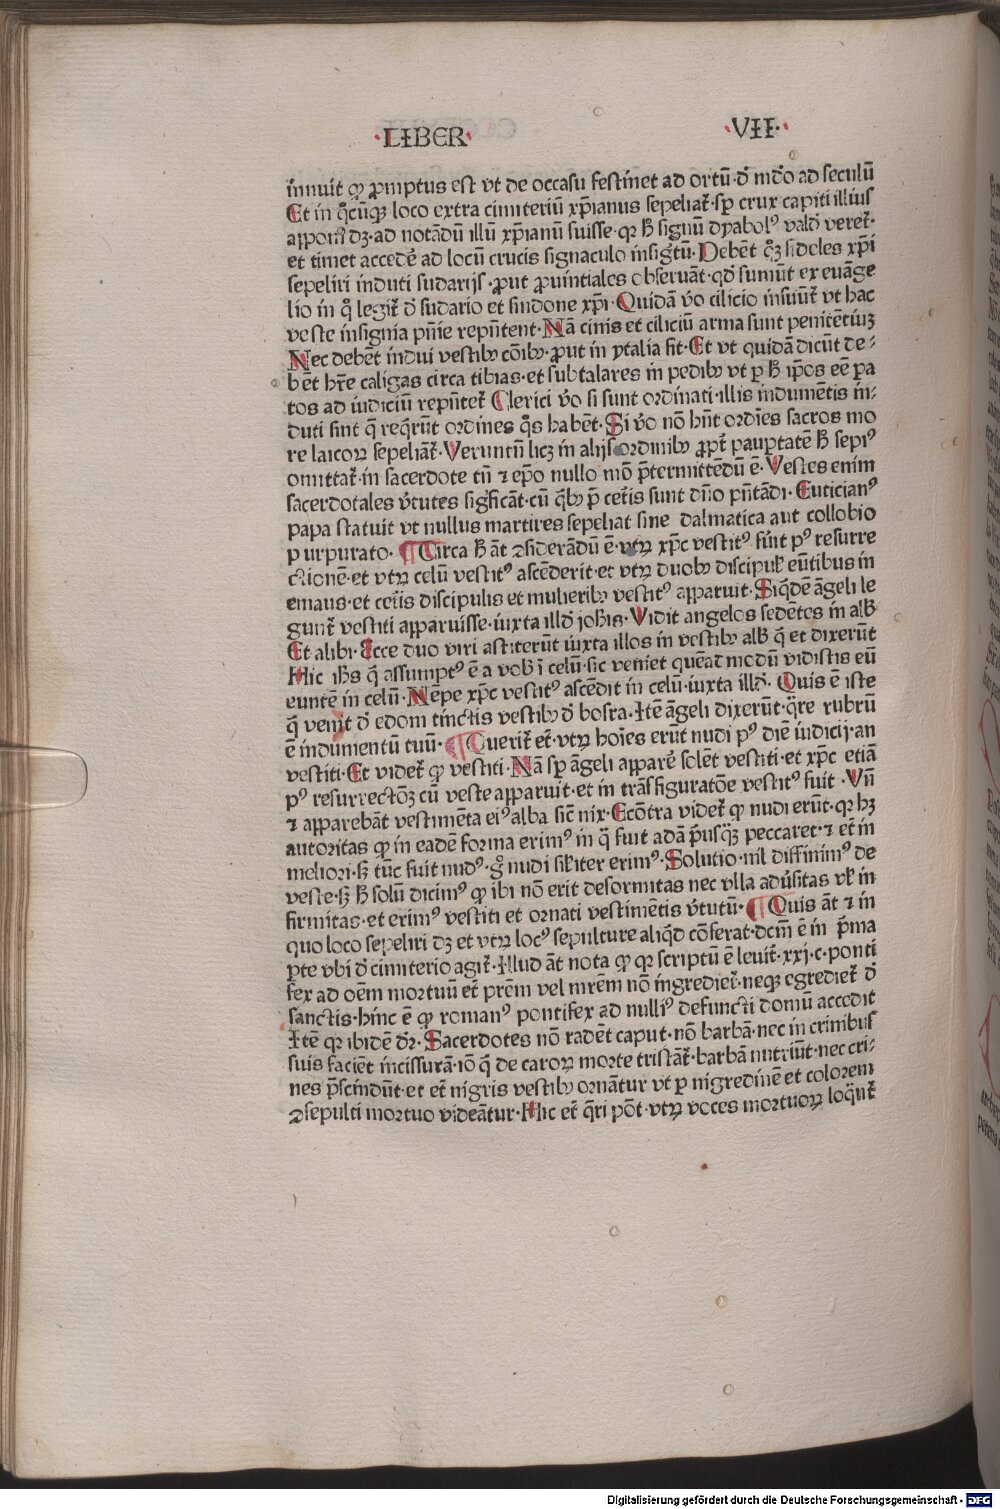 ·LIBER· ·VII·
innuit ꝙ ꝓmptus est vt de occasu festinet ad ortū·d̄ mūdo ad seculū
Et in q̊cūqꝫ loco extra cimiteriū xp̄ianus sepeliat᷑·sꝑ crux capiti illius
apponi dꝫ·ad notādū illū xp̄ianū fuisse·qꝛ h̄ signū dyabolꝰ valde veret᷑·
et timet accedē ad locū crucis signaculo insigtū·Debēt qꝫ fideles xp̄i
sepeliri induti sudarijs·ꝓut ꝓuintiales obseruāt·qd̄ sumūt ex euāge
lio in q̊ legit᷑ d̄ sudario et sindone xp̄i·Quidā v̄o cilicio insuūt᷑ vt hac
veste insignia pn̄ie repn̄tent·Nā cinis et ciliciū arma sunt penitētiūꝫ
Nec debēt indui vestibꝫ cōibꝫ·ꝓut in ytalia fit·Et vt quidā dicūt de⸗
bēt hr̄e caligas circa tibias·et subtalares in pedibꝫ vt ꝑ h̄ ip̄os eē pa
tos ad iudiciū repn̄tet᷑ Clerici v̄o si sunt ordinati·illis indumētis in⸗
duti sint q̄ req̄rūt ordines q̊s habēt·Si v̄o nō hn̄t ordīes sacros mo
re laicoꝝ sepeliāt᷑·Veruntn̄ licꝫ in alijs ordinibꝫ ꝓpt᷑ pauꝑtatē h̄ sepiꝰ
omittat᷑·in sacerdote tn̄ ⁊ ep̄o nullo mō p̄termittēdū ē·Vestes enim
sacerdotales v̓tutes sigificāt·cū q̄bꝫ p̄ cet̓is sunt dn̄o pn̄tādi·Euticianꝰ
papa statuit vt nullus martires sepeliat sine dalmatica aut collobio
p urpurato·¶Circa h̄ āt ↄsiderādū ē·vtꝝ xp̄c vestitꝰ fūit pꝰ resurre
ctionē·et vtꝝ celū vestitꝰ ascēderit·et vtꝝ duobꝫ discipul̓ eūtibus in
emaus·et cet̓is discipulis et mulieribꝫ vestitꝰ apparuit·Siq̇dē āgeli le
gunt᷑ vestiti apparuisse·iuxta illd̄ joh̄is·Vidit angelos sedētes in alb̓
Et alibi·Ecce duo viri astiterūt iuxta illos in vestibꝫ alb̓ q̄ et dixerūt
Hic ih̄s q̄ assumptꝰ ē a vob̓ ī celū·sic veniet quēad modū vidistis eū
euntē in celū·Nēpe xp̄c vestitꝰ ascēdit in celū·iuxta illd̄·Quis ē iste
q̄ venit d̄ edom tinctis vestibꝫ d̄ bosra·Itē āgeli dixerūt·q̄re rubrū
ē indumentū tuū·¶Querit᷑ et᷑·vtꝝ hoīes erūt nudi pꝰ diē iudicij·an
vestiti·Et videt᷑ ꝙ vestiti·Nā sꝑ āgeli apparē solēt vestiti·et xp̄c etiā
pꝰ resurrectōꝫ cū veste apparuit·et in trāsfiguratōe vestitꝰ fuit·Vn̄
⁊ apparebāt vestimēta eiꝰ alba sic̄ nix·Ecōtra videt᷑ ꝙ nudi erūt·qꝛ hꝫ
autoritas ꝙ in eadē forma erimꝰ in q̄ fuit adā p̄usq̄ꝫ peccaret·⁊ et̄ in
meliori·sꝫ tūc fuit nudꝰ·g̊ nudi sil̓iter erimꝰ·Solutio·nil̄ diffinimꝰ de
veste·sꝫ h̄ solū dicimꝰ ꝙ ibi nō erit deformitas nec vlla adūsitas vl̓ in
firmitas·et erimꝰ vestiti et ornati vestimētis v̓tutū·¶Quis āt ⁊ in
quo loco sepeliri dꝫ et vtꝝ locꝰ sepulture aliq̇d cōferat·dcm̄ ē in p̄ma
ꝑte vbi d̄ cimiterio agit᷑·Illud āt nota ꝙ qꝛ scriptū ē leuit᷑·xxj·c·ponti
fex ad oēm mortuū et᷑ prēm vel mrēm nō ingrediet᷑·neqꝫ egrediet᷑ d̄
sanctis·hinc ē ꝙ romanꝰ pontifex ad nulliꝰ defuncti domū accedit
Itē qꝛ ibidē dr̄·Sacerdotes nō radēt caput·nō barbā·nec in crinibus
suis faciēt incissurā·iō q̄ de caroꝝ morte tristāt᷑·barbā nutriūt·nec cri⸗
nes p̄scindūt·et et᷑ nigris vestibꝫ ornātur vt ꝑ nigredinē et colorem
ↄsepulti mortuo videātur·Hic et᷑ q̄ri pōt·vtꝝ voces mortuoꝝ loq̄ūt᷑
Digitalisierung gefördert durch die Deutsche Forschungsgemeinschaft - DFG